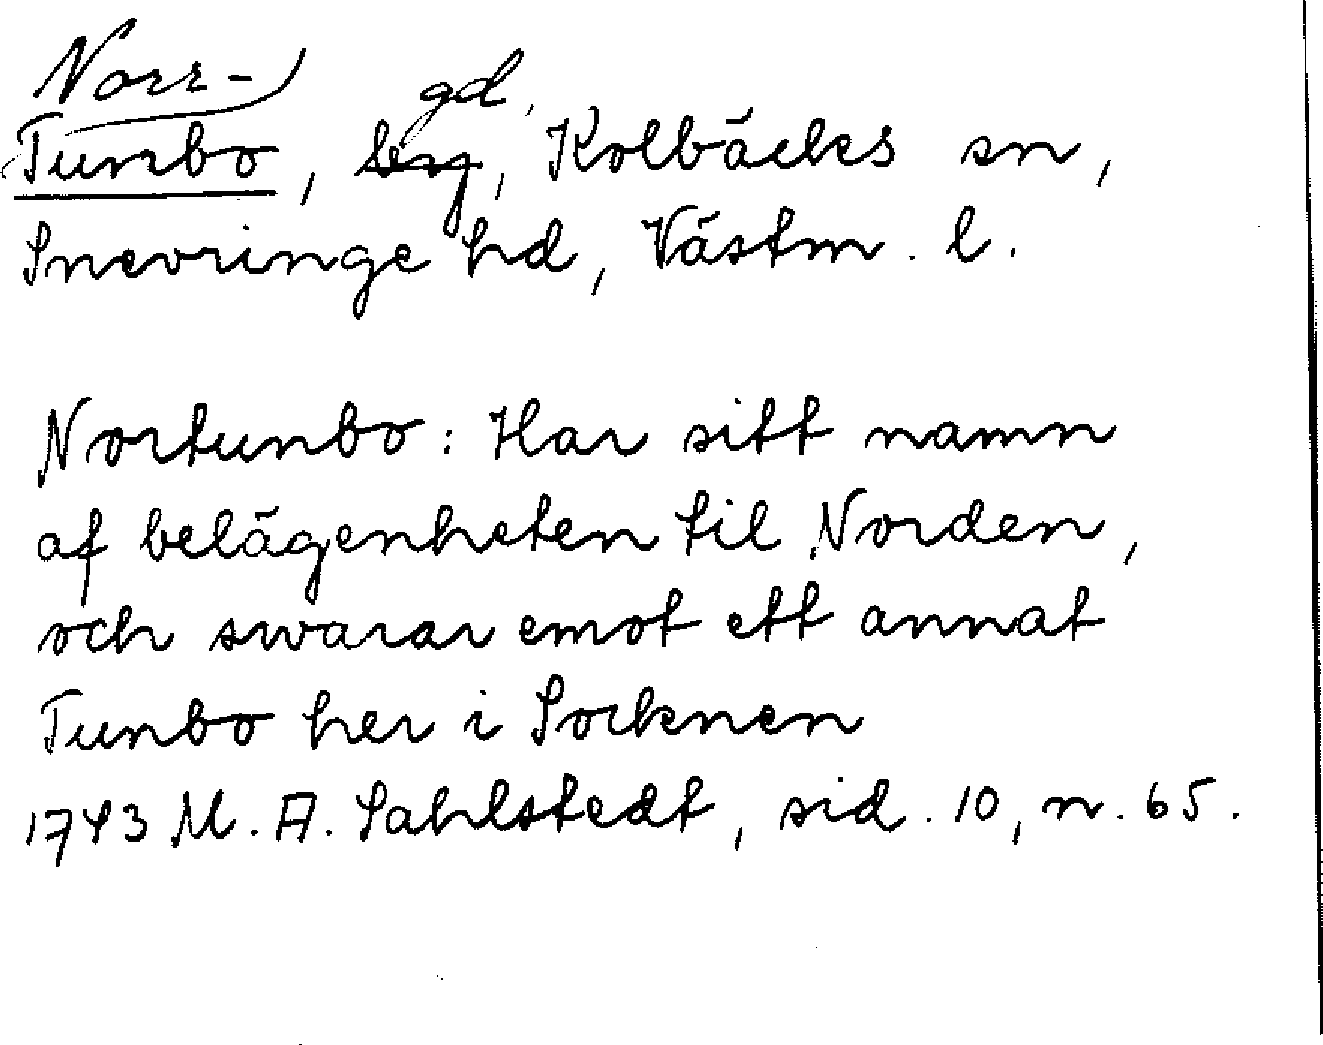 Norr-
gd,
Tunbo, by, Kolbäcks sn,
Snevringe hd, Västm. l.
Nortunbo: Har sitt namn
af belägenheten til Norden,
och swarar emot ett annat
Tunbo her i Socknen
1743 M. A. Sahlstedt, sid. 10, n. 65.